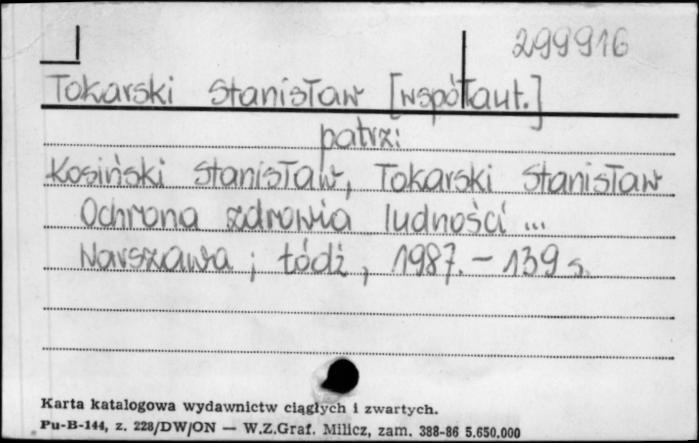 299916
Tokarski Stanisław [współaut.]
patrz:
Kosiński Stanisław, Tokarski Stanisław
Ochrona zdrowia ludności ...
Warszawa ; Łódź, 1987. - 139 s.
Karta katalogowa wydawnictw ciągłych i zwartych.
Pu-B-144, z. 228/DW/ON — W.Z.Graf. Milicz, zam. 388-86 5.650.000